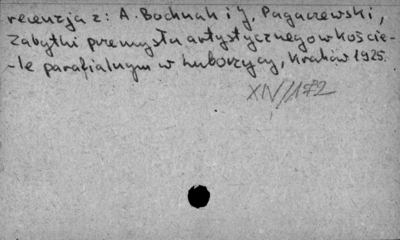 recenzja z: A. Bochnak i J. Pagaczewski,
Zabytki przemysłu artystycznego w koście-
-le parafialnym w Luborzycy, Kraków 1925.
XIV/172